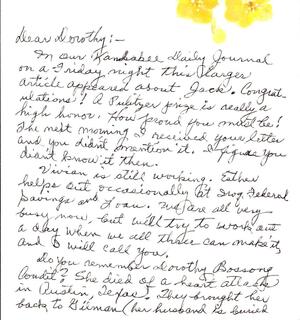 Dear Dorothy:-
In our Kankakee Daily Journal
on a Friday night this large
article appeared about Jack. Congrat-
ulations! A Pulitzer prize is really a
high honor. How proud you must be!
The next morning I received your letter
and you didn't mention it. I figure you
didn't know it then.
Vivian is still working. Esther
helps out occasionally at Iroq. Federal
Savings and Loan. We are all very
busy now, but will try to work out
a day when we all three can make it,
and I will call you.
Do you remember Dorothy Bossong
She died of a heart attack
in Austin, Texas. They brought her
back to Gilman (her husband is buried